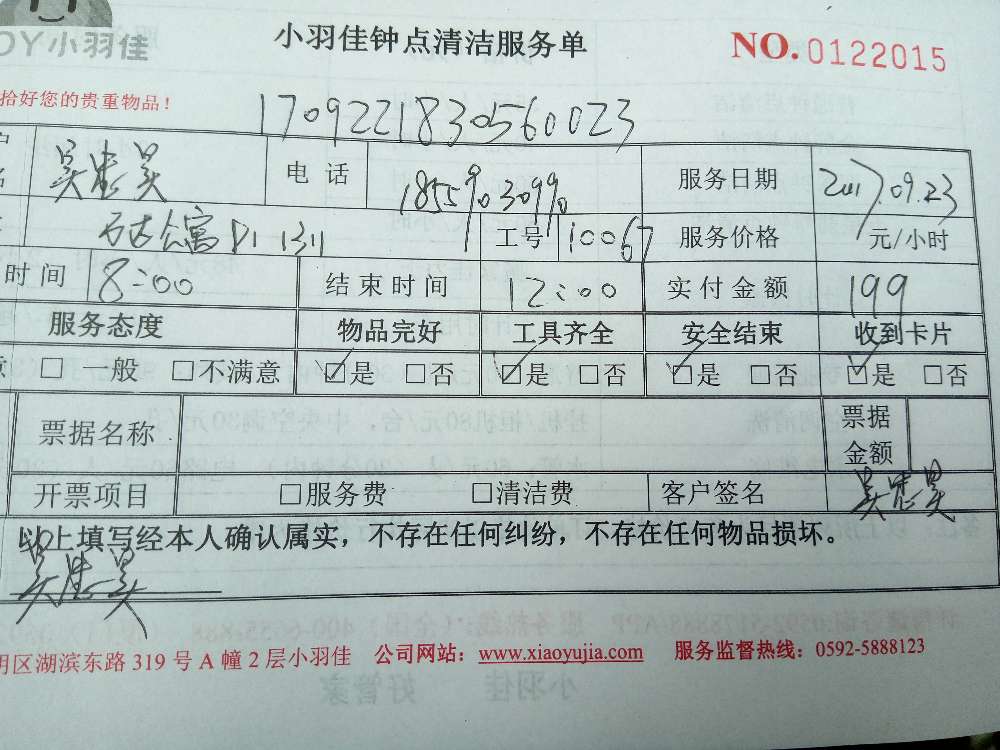 OY小羽佳
小羽佳钟点清洁服务单
NO.0122015
拾好您的贵重物品！
1709221830560023
吴忠昊 电话 服务日期 2017.09.23
万达公寓D1 1311 工号 10067 服务价格 元/小时
时间 8:00 结束时间 12:00 实付金额 199
服务态度 物品完好 工具齐全 安全结束 收到卡片
意 □ 一般 □不满意 ☑是 □否 ☑是 □否 ☑是 □否 ☑是 □否
票据名称 票据金额
开票项目 □服务费 □清洁费 客户签名 吴忠昊
以上填写经本人确认属实，不存在任何纠纷，不存在任何物品损坏。
吴忠昊
明区湖滨东路 319 号 A 幢 2 层小羽佳 公司网站：www.xiaoyujia.com 服务监督热线：0592-5888123